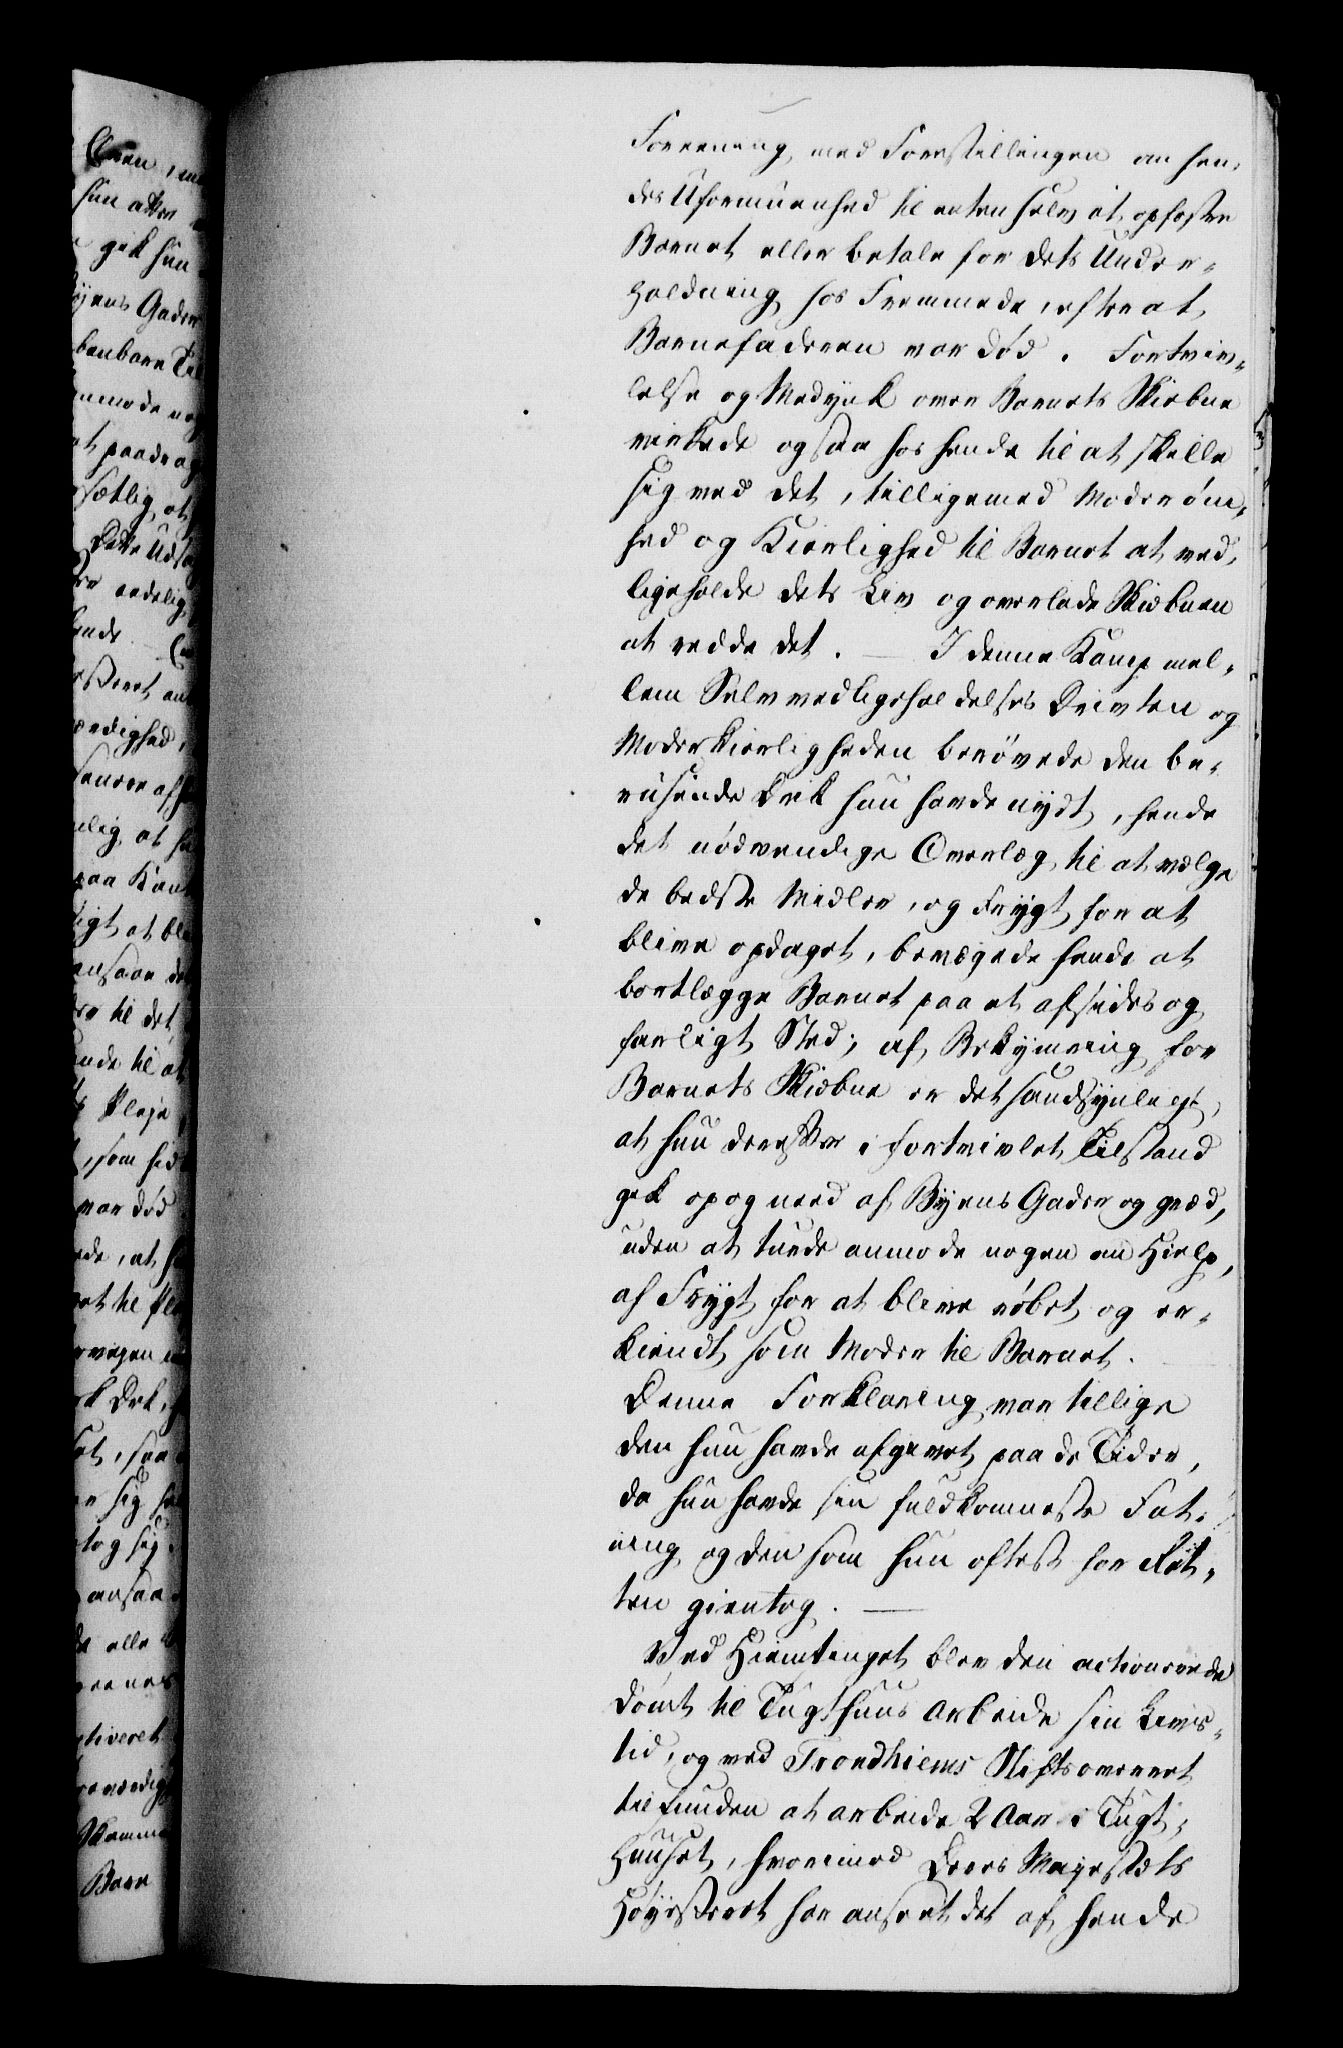 Forening, med Forestillingen om hen-
des Uformuenhed til enten selv at opfostre
Barnet eller betale for dets Under-
holdning hos Fremmede, efterat
Barnefaderen var død. Fortviv-
lelse og Medynk over Barnets Skiebne
virkede ogsaa hos hende til at skille
sig ved det, tilligemed Moderøm-
hed og Kierlighed til Barnet at ved-
ligeholde dets Liv og overlade Skiebnen
at redde det. — I denne Kamp mel-
lem Selvvedligeholdelses Driften og
Moderkierligheden berøvede den be-
rusende Drik hun havde nydt, hende
det nødvendige Overlæg til at vælge
de bedste Midler, og Frygt for at
blive opdaget, bevægede hende at
bortlægge Barnet paa et afsides og
farligt Sted; af Bekymring for
Barnets Skiebne er det sandsynligt,
at hun derefter i fortvivlet Tilstand
gik op og need af Byens Gader og græd,
uden at turde anmode nogen om Hielp,
af Frygt for at blive røbet og er-
kiendt som Moder til Barnet.
Denne Forklaring var tillige
den hun havde afgivet paa de Tider,
da hun havde sin fuldkomneste Fat-
ning og den som hun oftest for Ret-
ten gientog. —
Ved Hiemtinget blev den actionerede
dømt til Tugthuus Arbeide sin Livs-
tid, og ved Trondhiems Stiftsoverret
tilfunden at arbeide 2 Aar i Tugt-
Huuset, hvorimod Deres Majestæts
Høyesteret har anseet det af hende